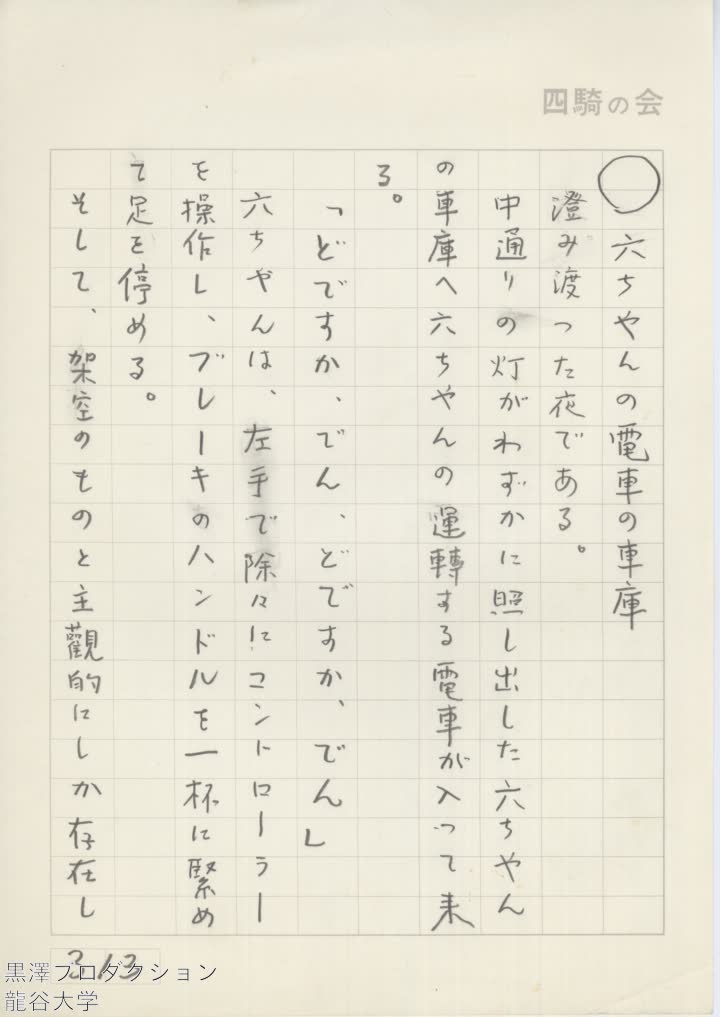 四騎の会
◯ 六ちやんの電車の車庫
澄み渡つた夜である。
中通りの灯がわずかに照し出した六ちやん
の車庫へ六ちやんの運轉する電車が入つて来
る。
「どですか、でん、どですか、でん」
六ちやんは、左手で除々にコントローラー
を操作し、ブレーキのハンドルを一杯に緊め
て足を停める。
そして、架空のものと主觀的にしか存在し
313
黒澤プロダクション
龍谷大学